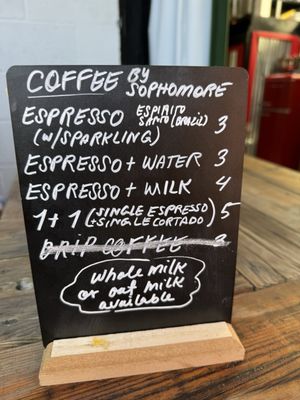 COFFEE BY SOPHOMORE
ESPRESSO ESPIRITO SANTO (BRAZIL) 3
(w/SPARKLING)
ESPRESSO + WATER 3
ESPRESSO + MILK 4
1+1 (SINGLE ESPRESSO + SINGLE CORTADO) 5
DRIP COFFEE 3
whole milk
or oat milk
available